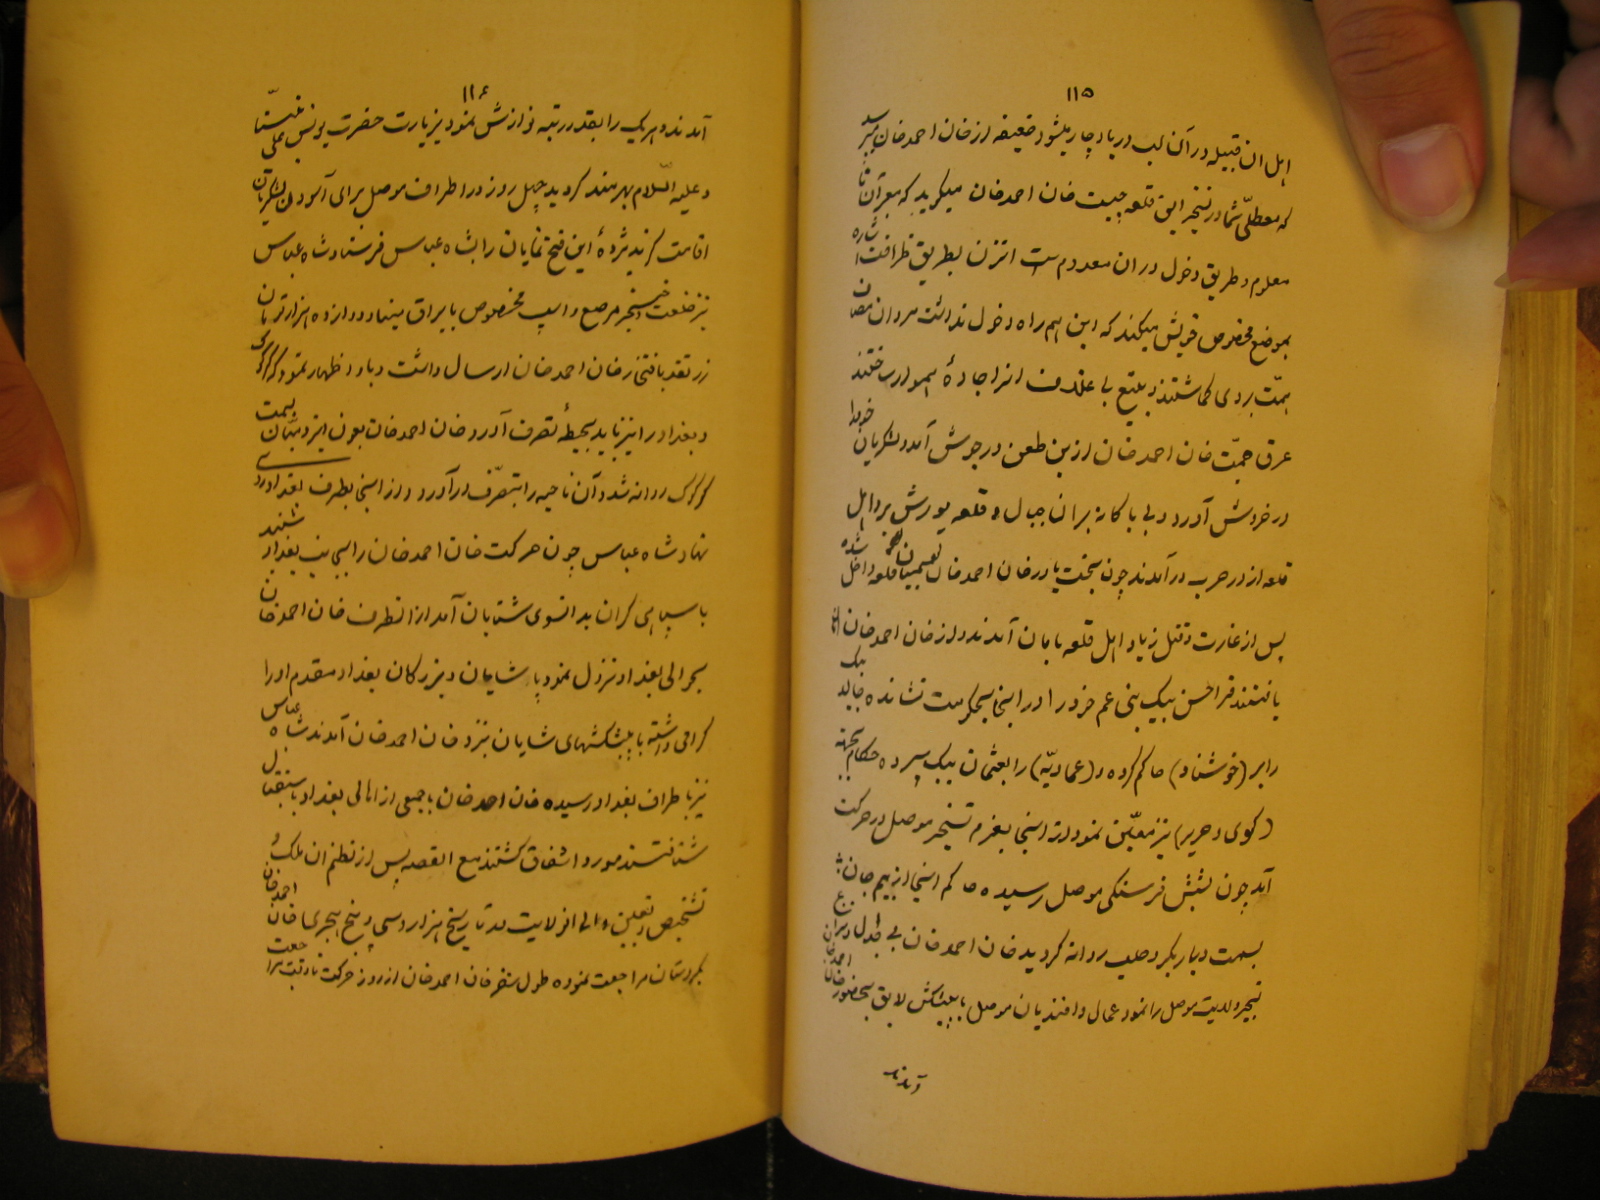 ۱۱۵
اهل ان قبیله در آن لب دریا دچار میشود ضعیفه از خان احمد خان میپرسد
که معطلی شما در تسخیر این قلعه چیست خان احمد خان میگوید که معبر آن نا
معلوم و طریق دخول در ان معدوم است انزن بطریق ظرافت اشاره
بموضع مخصوص خویش میکند که این هم راه دخول نداشت مردان
همت بروی گماشتند و بتیغ بی غلاف انرا جادهٔ هموار ساختند
عرق حمیّت خان احمد خان ازین طعن در جوش آمد و لشکریان خود را
در خروش آورد و بی باکانه بران جبال و قلعه یورش برد اهل
قلعه از در حرب در آمدند چون بخت یاور خان احمد خان قلعه داخل شده
پس از غارت و قتل زیاد اهل قلعه بامان آمدند و از خان احمد خان امان
یافتند قرا حسن بیک بنی عم خود را در اینجا بحکومت نشانده خالد بیک
را بر (خوشناو) حاکم کرده و (عمادیّه) را بعثمان بیک سپرده حکام بجهة
(کوی و حریر) نیز معیّن نمود از اینجا بعزم تسخیر موصل در حرکت
آمد چون بشش فرسنگی موصل رسیده حاکم اینجا از بیم جان
بسمت دیاربکر و حلب روانه گردید خان احمد خان بی جدل و نزاع
تسخیر ولایت موصل را نمود عمال و افندیان موصل با پیشکش لایق بحضور خان احمد خان
آمدند
۱۱۶
آمدند و هر یک را بقدر رتبه نوازش نمود بزیارت حضرت یونس علی نبیّنا
و علیه السّلام بهره‌مند گردید چهل روز در اطراف موصل برای آسودن لشکریان
اقامت کرند مژدهٔ این فتح نمایان را بشاه عباس فرستاد شاه عباس
نیز خلعت و خنجر مرصع و اسپ مخصوص با یراق مینا و دوازده هزار تومان
زر نقد بافتخار خان احمد خان ارسال داشت و باو اظهار نمود که کرکوک
و بغداد را نیز باید بحیطهٔ تصرف آورد خان احمد خان بعون ایزد منان بسمت
کرکوک روانه شد و آن ناحیه را بتصرّف در آورد و از اینجا بطرف بغداد روی
نهاد شاه عباس چون حرکت خان احمد خان را بجانب بغداد شنید
با سپاهی گران بدانسوی شتابان آمد از انطرف خان احمد خان
بحوالی بغداد نزول نمود پاشایان و بزرگان بغداد مقدم او را
گرامی داشته با پیشکشهای شایان نزد خان احمد خان آمدند شاه عباس
نیز باطراف بغداد رسیده خان احمد خان با جمعی از اهالی بغداد باستقبال
شتافتند مورد اشفاق گشتند مع القصه پس از نظم ان ملک و
تشخیص و تعیین والی انولایت در تاریخ هزار و سی و پنج هجری خان احمد خان
بکردستان مراجعت نموده طول سفر خان احمد خان از روز حرکت تا وقت مراجعت